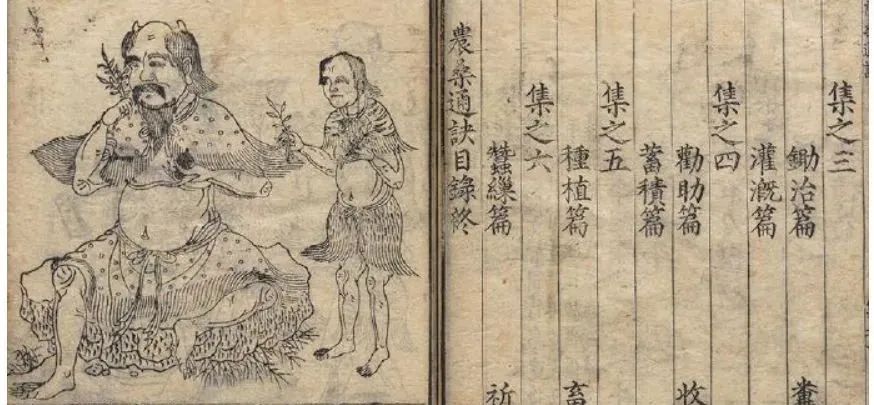 集之三
鋤治篇 糞
灌漑篇
集之四
勸助篇 收
蓄積篇
集之五
種植篇 畜
集之六
蠶繅篇 祈
農桑通訣目錄終